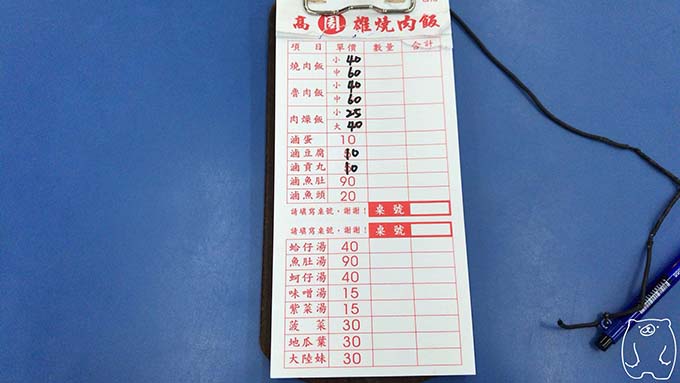 高 周 雄燒肉飯
項目 單價 數量 合計
燒肉飯 小 40
中 60
魯肉飯 小 40
中 60
肉燥飯 小 25
大 40
滷蛋 10
滷豆腐 10
滷貢丸 10
滷魚肚 90
滷魚頭 20
請填寫桌號，謝謝！ 桌號
請填寫桌號，謝謝！ 桌號
蛤仔湯 40
魚肚湯 90
蚵仔湯 40
味噌湯 15
紫菜湯 15
菠菜 30
地瓜葉 30
大陸妹 30